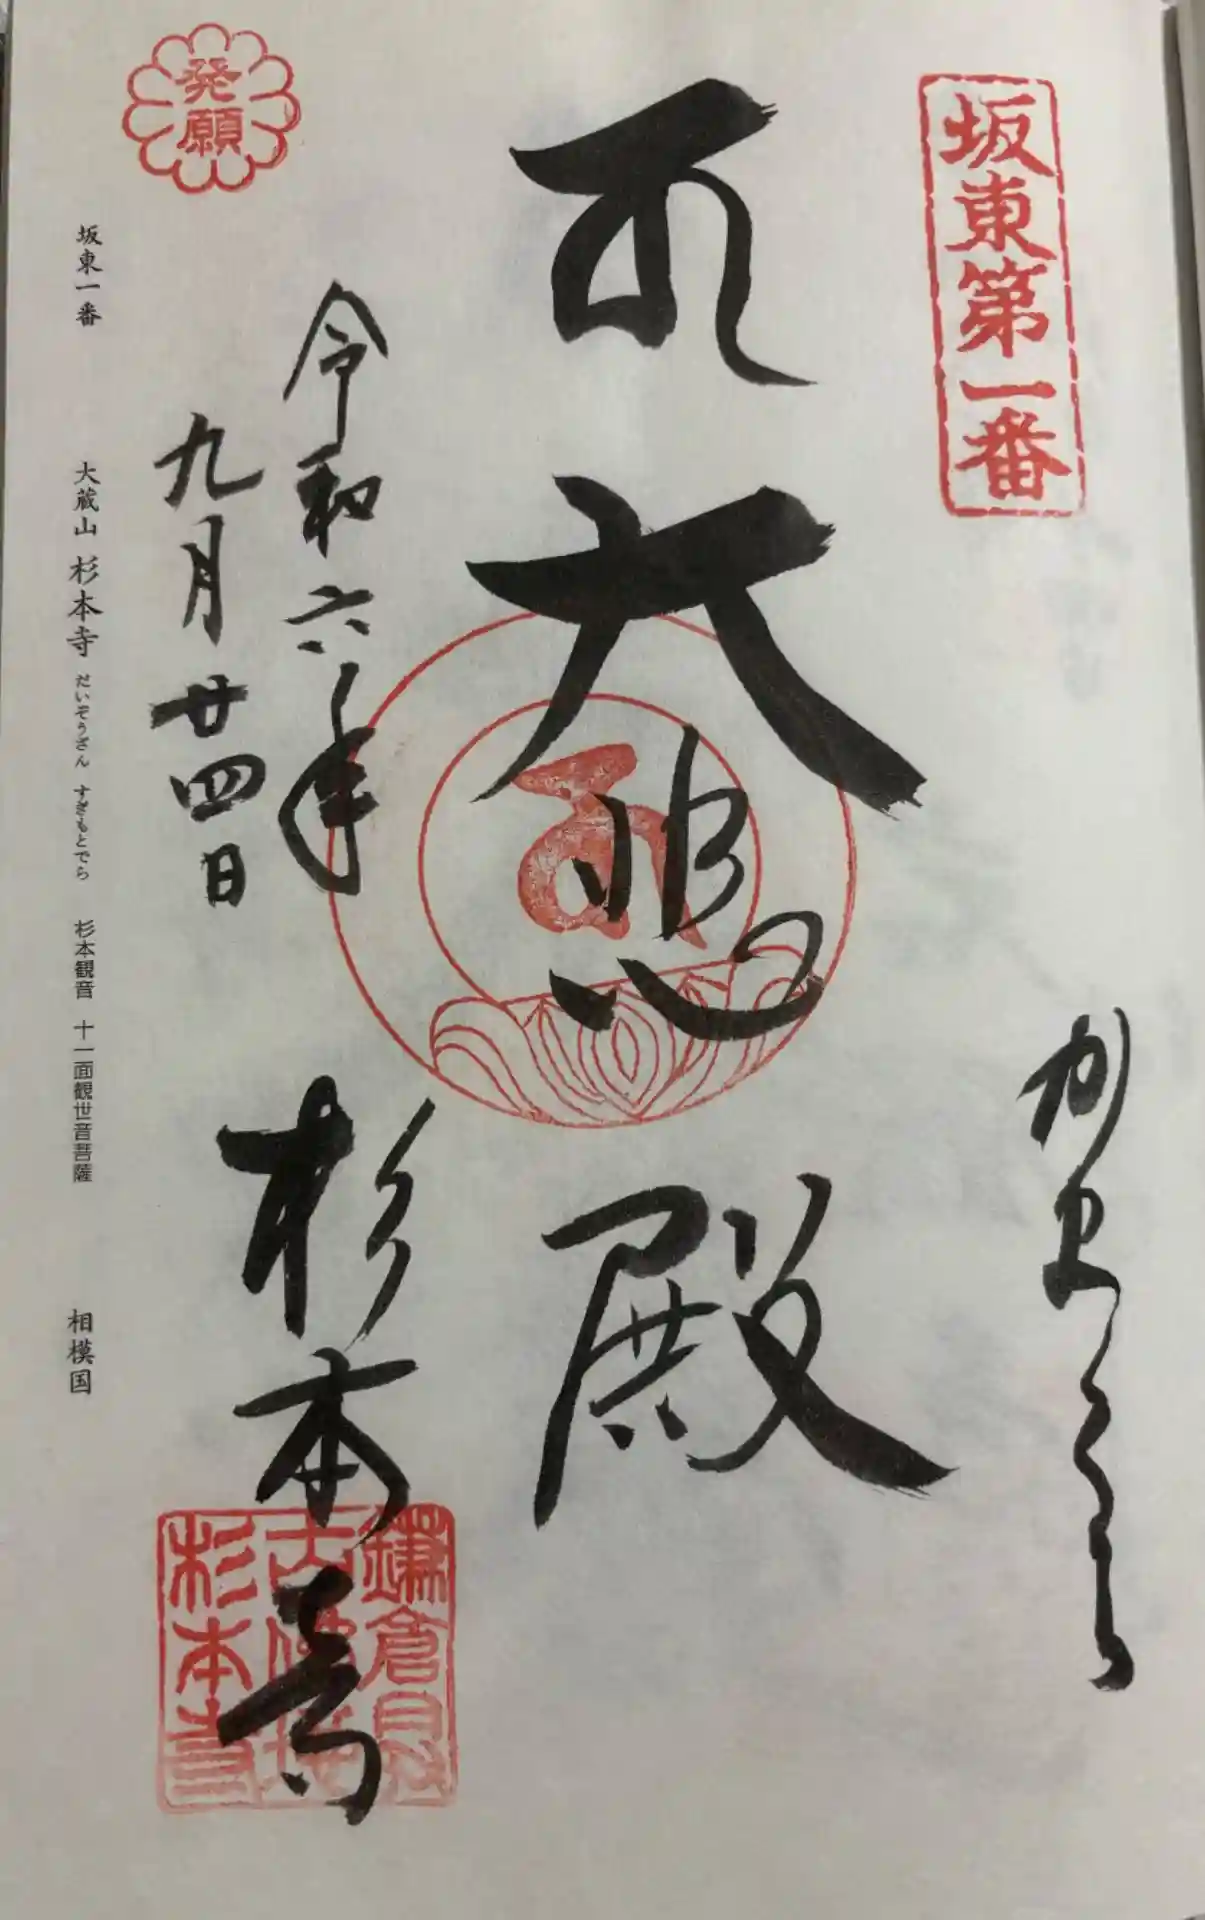 坂東第一番
大悲殿
令和六年
九月廿四日
杉本寺
発願
坂東一番 大蔵山 杉本寺 だいぞうざん すぎもとでら 杉本観音 十一面観世音菩薩 相模国